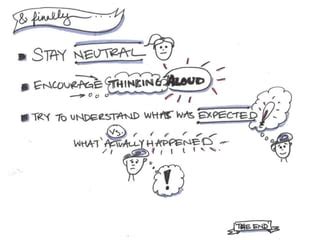 & finally
STAY NEUTRAL
ENCOURAGE THINKING ALOUD
TRY TO UNDERSTAND WHAT WAS EXPECTED
VS.
WHAT ACTUALLY HAPPENED
!
THE END